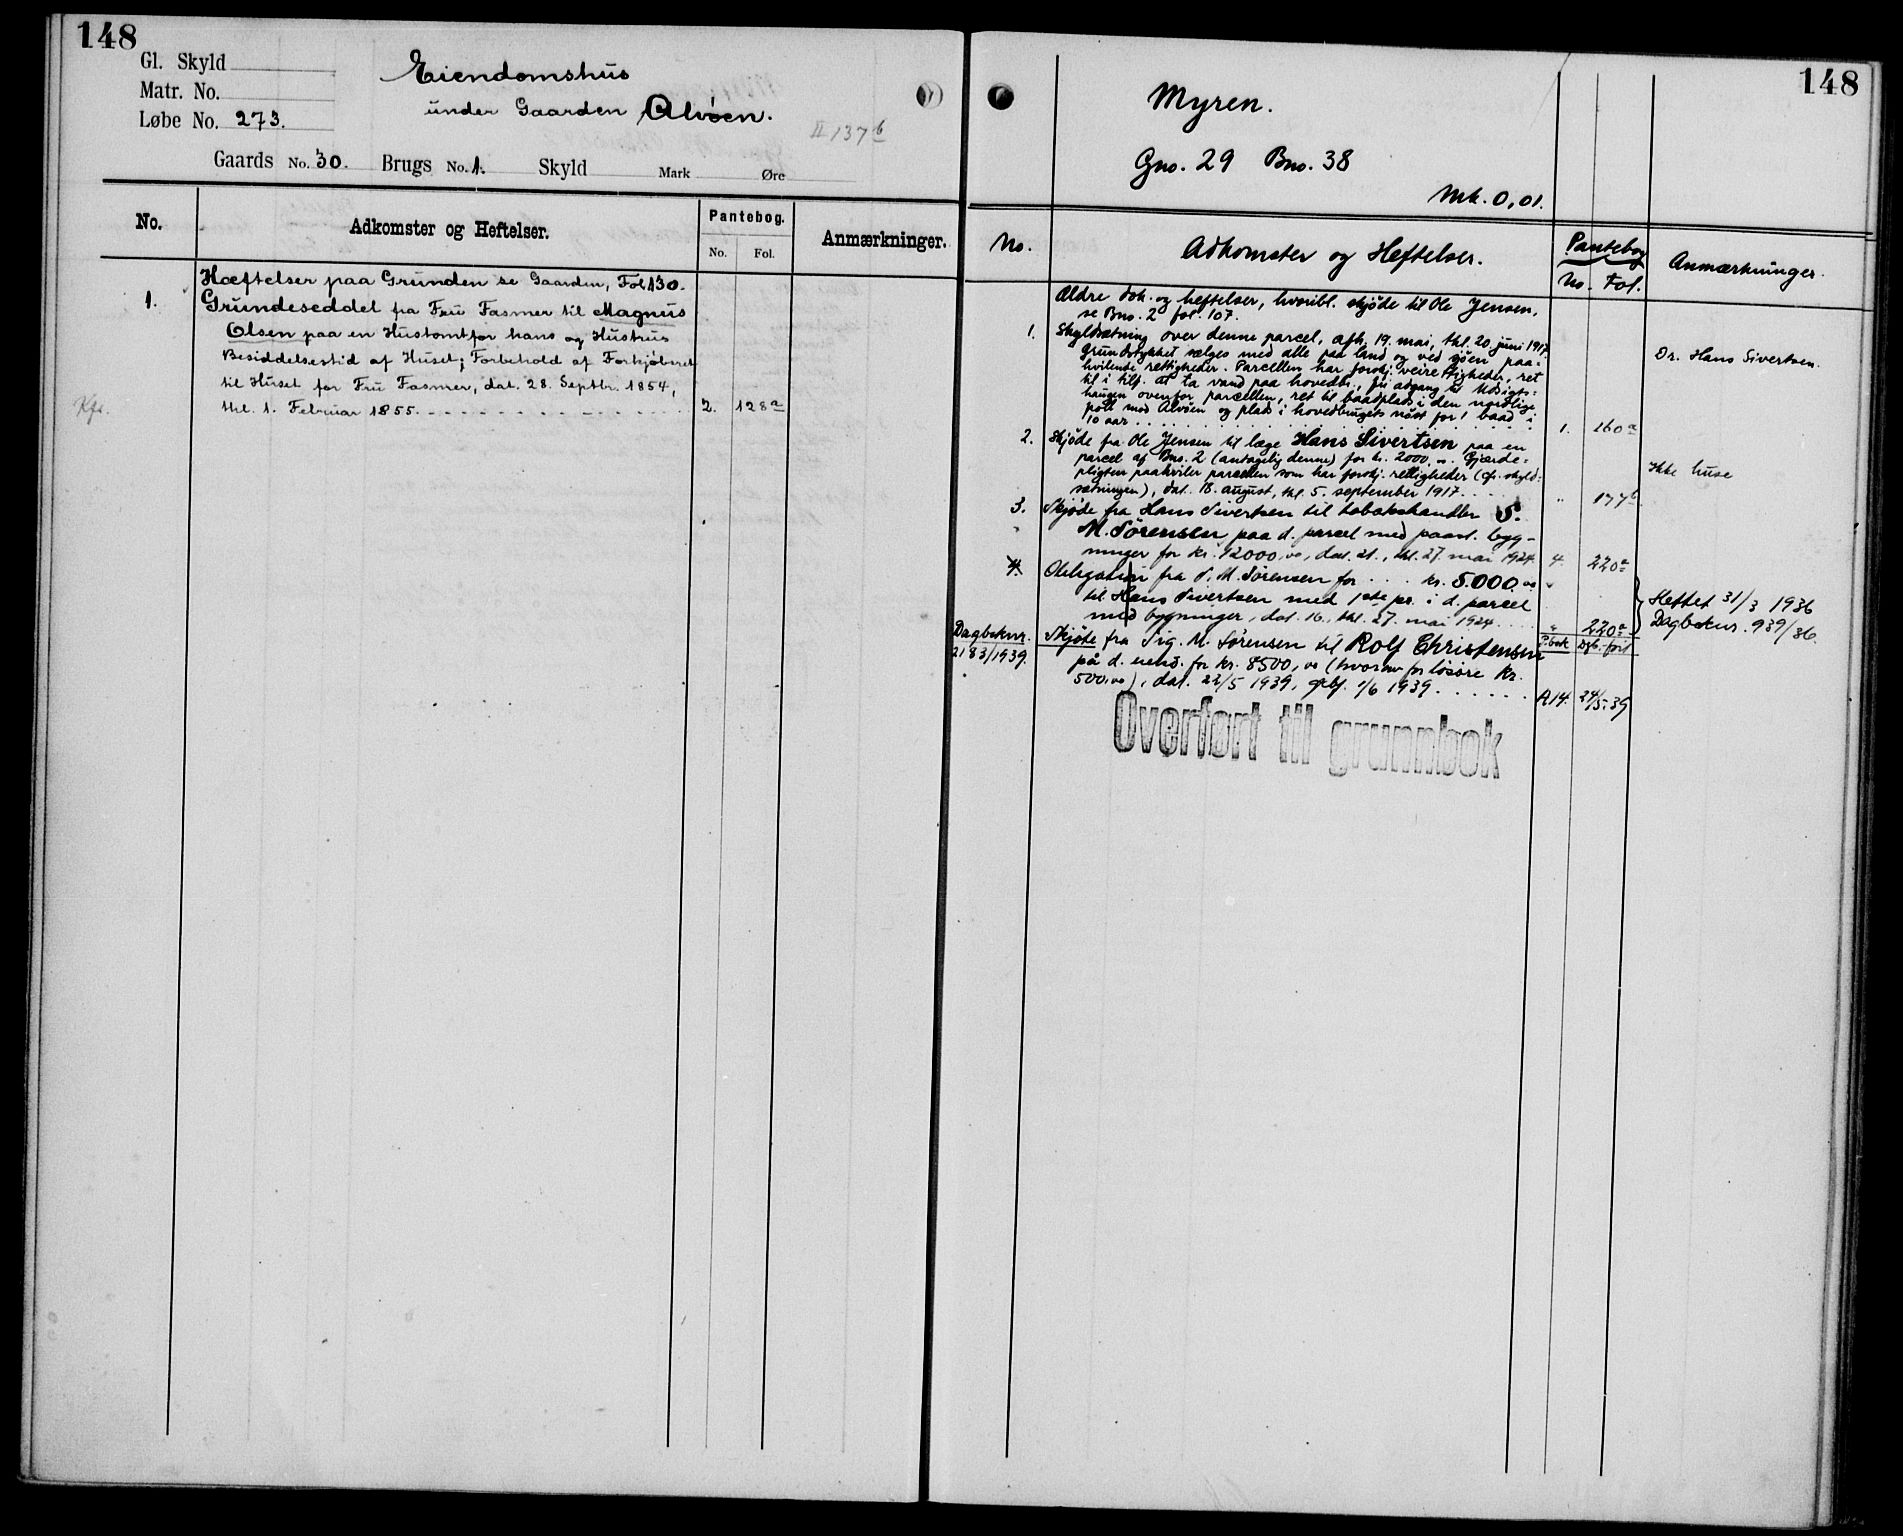 148
Gl. Skyld
Matr. No.
Løbe No. 273.
Eiendomshus
under Gaarden Alvøen.
II 137b
Gaards No. 30. Brugs No. 1. Skyld Mark Øre
No. Adkomster og Heftelser. Pantebog. Anmærkninger.
No. Fol.
Hæftelser paa Grunden se Gaarden, Fol. 130.
1. Grundeseddel fra Fru Fasmer til Magnus
Olsen paa en Hustomt for hans og Hustrus
Besiddelsestid af Huset; Forbehold af Forkjøbsret
til Huset for Fru Fasmer, dat. 28. Septbr. 1854,
thl. 1. Februar 1855. 2. 128a
Kfr.
148
Myren.
Gno. 29 Bno. 38
Mk. 0,01.
No. Adkomster og Heftelser. Pantebog Anmærkninger.
No. Fol.
Ældre dok. og heftelser, hvoribl. skjøde til Ole Jensen,
se Bno. 2 fol. 107.
1. Skyldsætning over denne parcel, afh. 19. mai, thl. 20. juni 1917.
Grundstykket sælges med alle paa land og ved sjøen paa-
hvilende rettigheder. Parcellen har forskj. veirettigheder, ret
til i tilf. at ta vand paa hovedbr., fri adgang til Utsigts-
haugen ovenfor parcellen, ret til baadplads i den nordlige
poll mod Alvøen og plads i hovedbrugets nøst for 1 baad i
10 aar. 1. 160a
Dr. Hans Sivertsen.
2. Skjøde fra Ole Jensen til læge Hans Sivertsen paa en
parcel af Bno. 2 (antagelig denne) for kr. 2000,00. Gjærde-
pligten paahviler parcellen som har forskj. rettigheder (cfr. skyld-
sætningen), dat. 18. august, thl. 5. september 1917. " 177b
Ikke huse
3. Skjøde fra Hans Sivertsen til tobakshandler S.
M. Sørensen paa d. parcel med paast. byg-
ninger for kr. 12000,00, dat. 21., thl. 27. mai 1924. 4. 220a
4. Obligation fra S. M. Sørensen for kr. 5.000,00 "
til Hans Sivertsen med 1ste pr. i d. parcel
med bygninger, dat. 16., thl. 27. mai 1924. " 220a
Heftet 31/3 1936
Dagboknr. 939/36.
Dagboknr. 2183/1939.
P.bok Dgb. ført
Skjøte fra Sig. M. Sørensen til Rolf Christensen
på d. eiend. for kr. 8500,00 (hvorav for løsøre kr.
500,00), dat. 22/5 1939, 1/6 1939. A14. 24/5-39
Overført til grunnbok